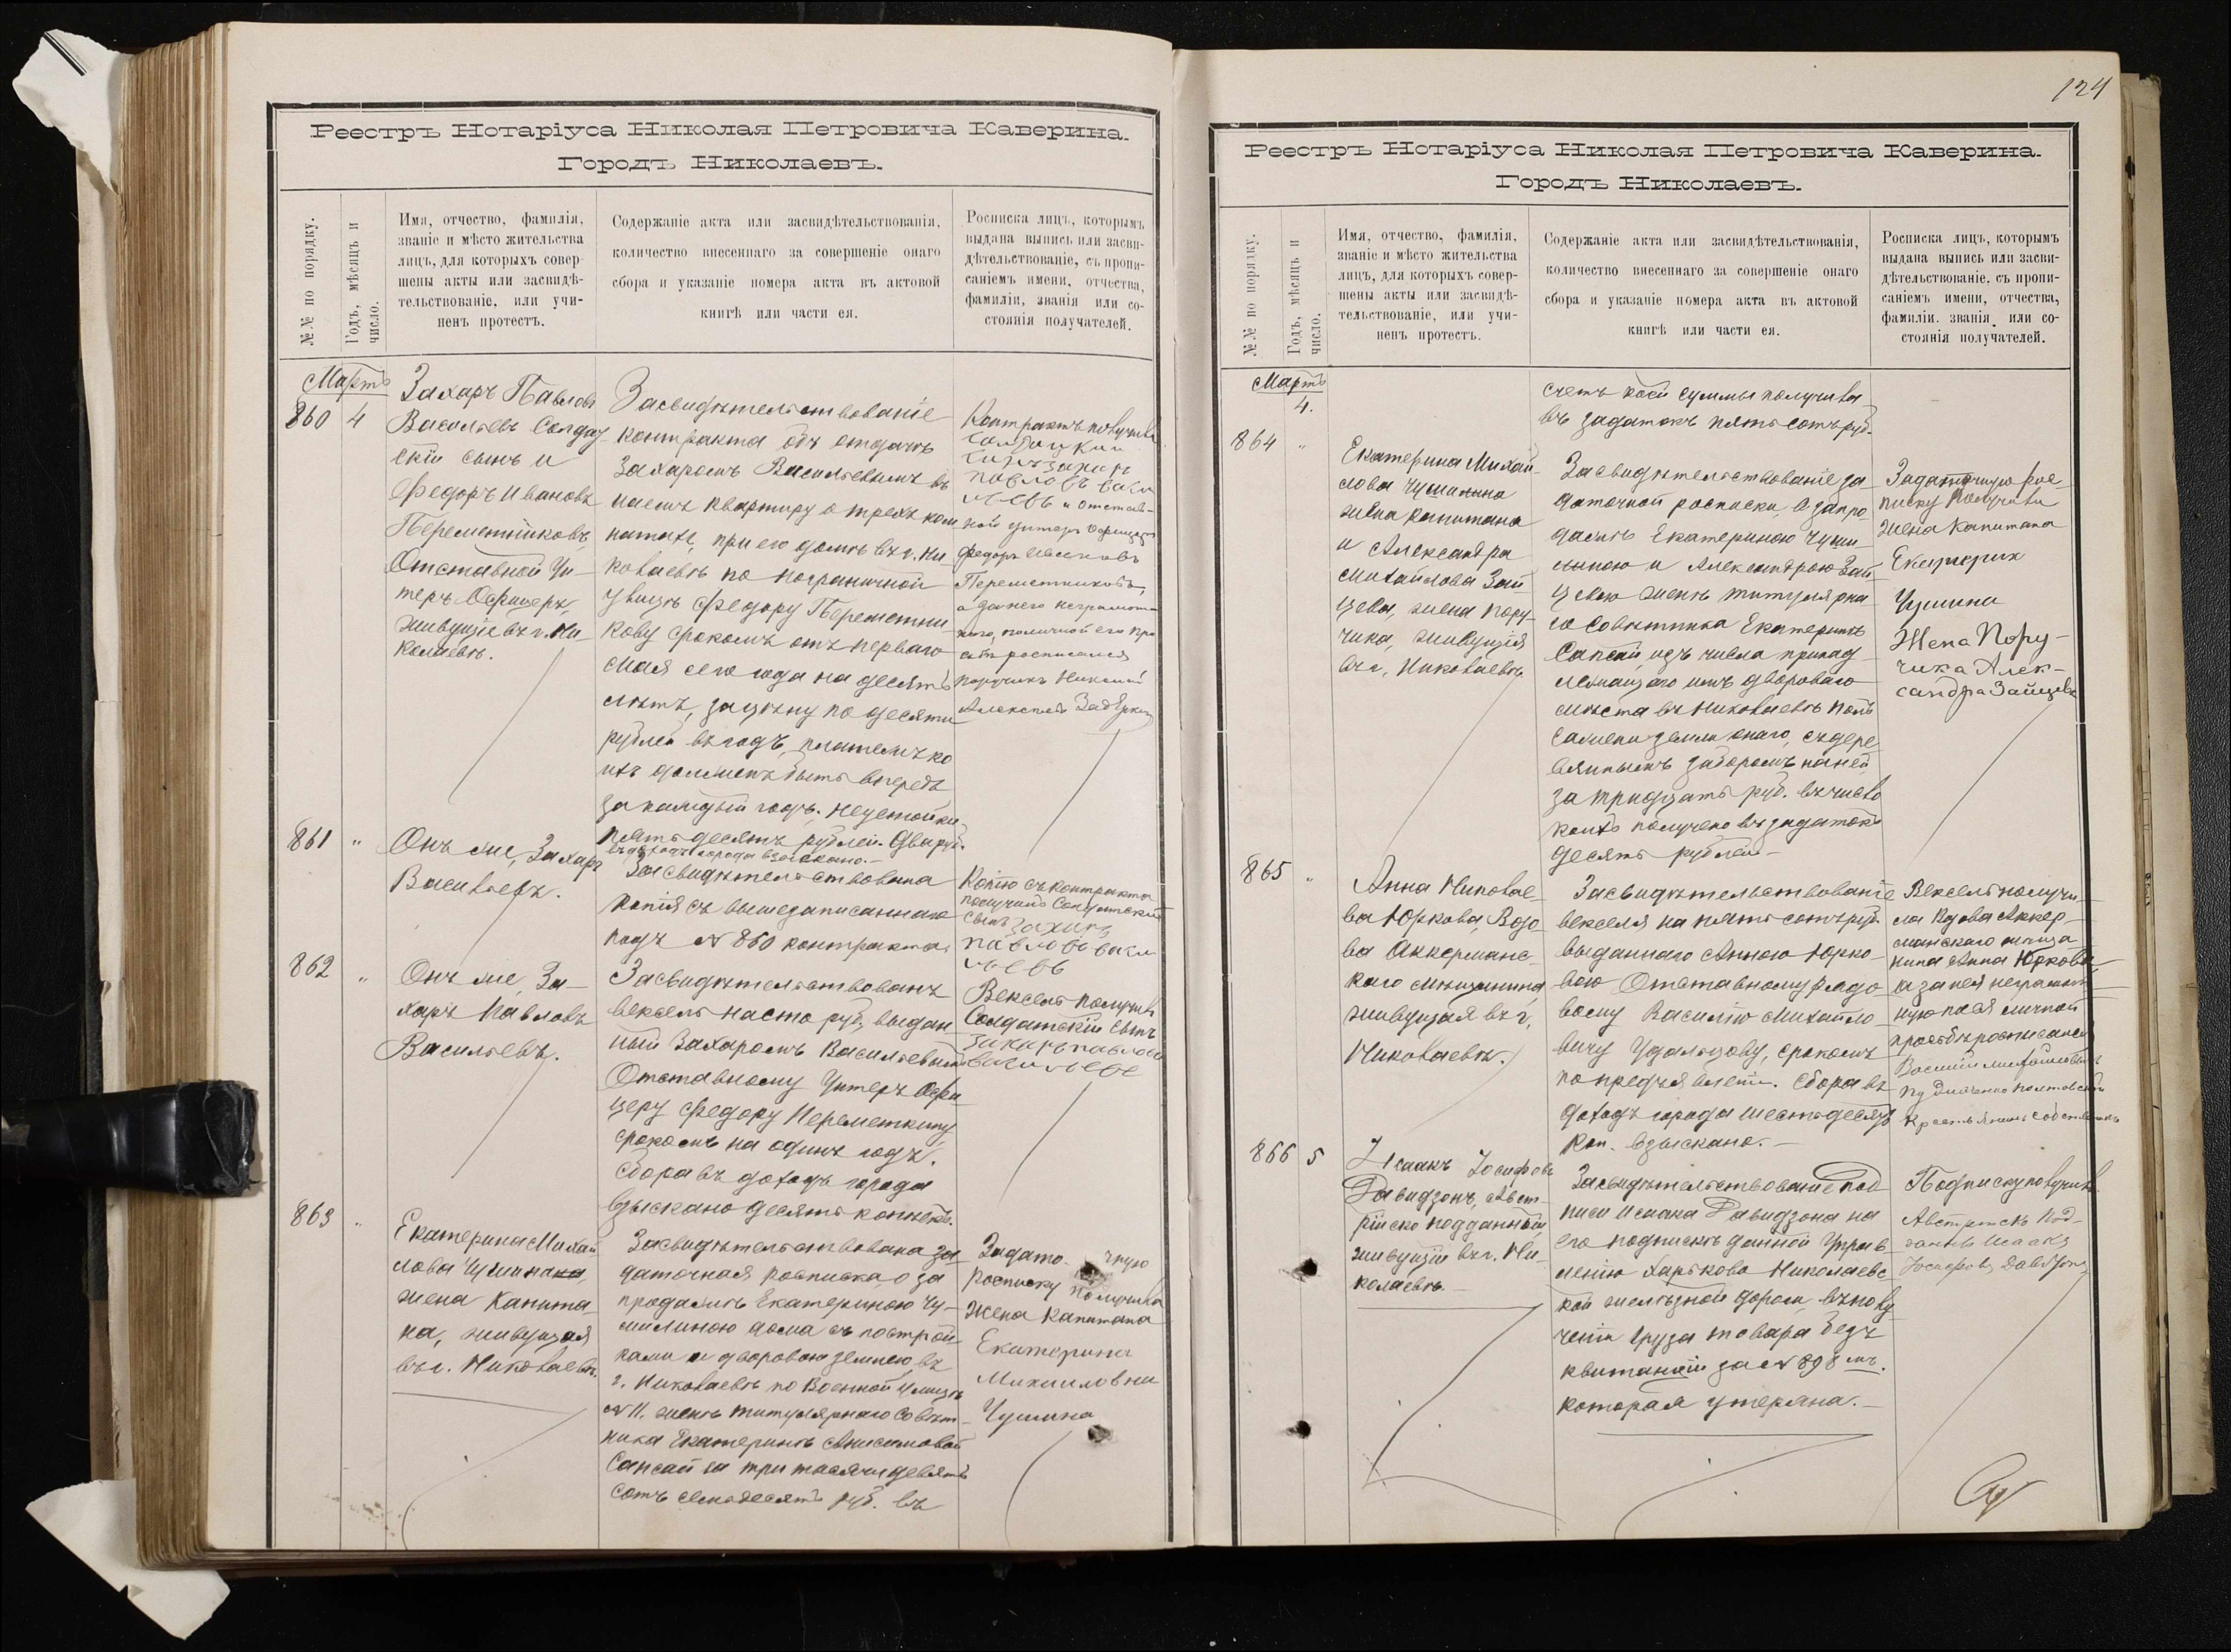 Реестръ Нотаріуса Николая Петровича Каверина.
Городъ Николаевъ.
№№ по порядку.
Годъ, мѣсяцъ и
число.
Имя, отчество, фамилія,
званіе и мѣсто жительства
лицъ, для которыхъ совер-
шены акты или засвидѣ-
тельствованіе, или учи-
ненъ протестъ.
Содержаніе акта или засвидѣтельствованія,
количество внесеннаго за совершеніе онаго
сбора и указаніе номера акта въ актовой
книгѣ или части ея.
Росписка лицъ, которымъ
выдана выпись или засви-
дѣтельствованіе, съ пропи-
саніемъ имени, отчества,
фамиліи, званія или со-
стоянія получателей.
Мартъ
860 4
Захаръ Павловъ
Васильевъ Солдат
скій сынъ и
Федоръ Ивановъ
Переметниковъ,
Отставной Ун-
теръ Офицеръ,
живущіе въ г. Ни-
колаевѣ.
Засвидѣтельствованіе
контракта объ отдачѣ
Захаромъ Васильевымъ въ
наемъ квартиру о трехъ ком
натахъ, при его домѣ въ г. Ни
колаевѣ по пограничной
улицѣ Федору Переметни-
кову срокомъ отъ перваго
Мая сего года на десять
лѣтъ, за цѣну по десяти
рублей въ годъ, платежъ ко
ихъ долженъ быть впередъ
за каждый годъ. Неустойки
пятьдесятъ рублей. Два руб.
въ доходъ города взыскано.-
Контрактъ получилъ
солдацкий
сынъ захаръ
павловъ васи
льевъ и отстав-
ной унтеръ офицеръ
Федоръ Ивановъ
Переметниковъ,
а за него неграмот-
наго, по личной его про
сьбѣ росписался
поручикъ Николай
Алексеевъ
861 "
Онъ же, Захаръ
Васильевъ.
Засвидѣтельствована
копія съ вышезаписаннаго
подъ № 860 контракта.
Копію съ контракта
получилъ Солдатскій
сынъ захаръ
павловъ васи
льевъ
862 "
Онъ же, За-
харъ Павловъ
Васильевъ.
Засвидѣтельствованъ
вексель на сто руб., выдан
ный Захаромъ Васильевымъ
Отставному Унтеръ Офи
церу Федору Переметкину
срокомъ на одинъ годъ.
Сбора въ доходъ города
взыскано десять копѣекъ.
Вексель получилъ
Солдатскій сынъ
захаръ павловъ
васильевъ
863 "
Екатерина Михай
лова Чушина,
жена Капита
на, живущая
въ г. Николаевѣ.
Засвидѣтельствована за
даточная росписка, о за
продажѣ Екатериною Чу-
шиною дома съ построй
ками и дворовою землею, въ
г. Николаевѣ по Военной улицѣ
№ 11. женѣ титулярнаго Совѣт-
ника Екатеринѣ Анисимовой
Сапсай за три тысячи девять
сотъ семьдесятъ руб. въ
Задато- чную
росписку получила
Жена Капитана
Екатерина
Михайловна
Чушина
124
Реестръ Нотаріуса Николая Петровича Каверина.
Городъ Николаевъ.
№№ по порядку.
Годъ, мѣсяцъ и
число.
Имя, отчество, фамилія,
званіе и мѣсто жительства
лицъ, для которыхъ совер-
шены акты или засвидѣ-
тельствованіе, или учи-
ненъ протестъ.
Содержаніе акта или засвидѣтельствованія,
количество внесеннаго за совершеніе онаго
сбора и указаніе номера акта въ актовой
книгѣ или части ея.
Росписка лицъ, которымъ
выдана выпись или засви-
дѣтельствованіе, съ пропи-
саніемъ имени, отчества,
фамиліи. званія или со-
стоянія получателей.
Мартъ
4.
счетъ коей суммы получила
въ задатокъ пять сотъ руб.
864 "
Екатерина Михай-
лова Чушина
жена Капитана
и Александра
Михайлова Зай
цева, жена пору-
чика, живущія
въ г. Николаевѣ.
Засвидѣтельствованіе за-
даточной росписки о запро
дажѣ Екатериною Чуши-
ною и Александрою Зай
цевою женѣ титулярна
го Совѣтника Екатеринѣ
Сапсай изъ числа принад
лежащаго имъ двороваго
мѣста въ Николаевѣ полъ
сажени земли онаго, съ дере
вяннымъ заборомъ на ней
за тридцать руб. въ число
коихъ получено въ задатокъ
десять рублей.-
Задаточную рос
писку получили
Жена Капитана
Екатерина
Чушина
Жена Пору-
чика Алек-
сандра Зайцева
865 "
Анна Николае-
ва Юркова, Вдо-
ва Аккерманс-
каго мѣщанина
живущая въ г.
Николаевѣ.
Засвидѣтельствованіе
векселя на пять сотъ руб.
выданнаго Анною Юрко-
вою Отставному рядо
вому Василію Михайло
вичу Удальцову, срокомъ
по предъявленіи. Сбора въ
доходъ города шестьдесятъ
коп. взыскано.-
Вексель получи-
ла Вдова Аккер-
манскаго мѣща-
нина Анна Юркова,
а за нея неграмот-
ную по ея личной
просьбѣ росписался
Василій Михайловичъ
крестьянинъ собственникъ
866 5
Исаакъ Іосифовъ
Давидзонъ, Авст-
рійско подданный
живущій въ г. Ни-
колаевѣ.-
Засвидѣтельствованіе под
писи Исаака Давидзона на
его подпискѣ данной Управ-
ленію Харьково Николаевс-
кой желѣзной дороги, въ полу
ченіи груза товара безъ
квитанціи за № 898 мъ.
которая утеряна.-
Подписку получилъ
Австрійскъ Под-
данный Исаакъ
Іосифовъ Давидзонъ